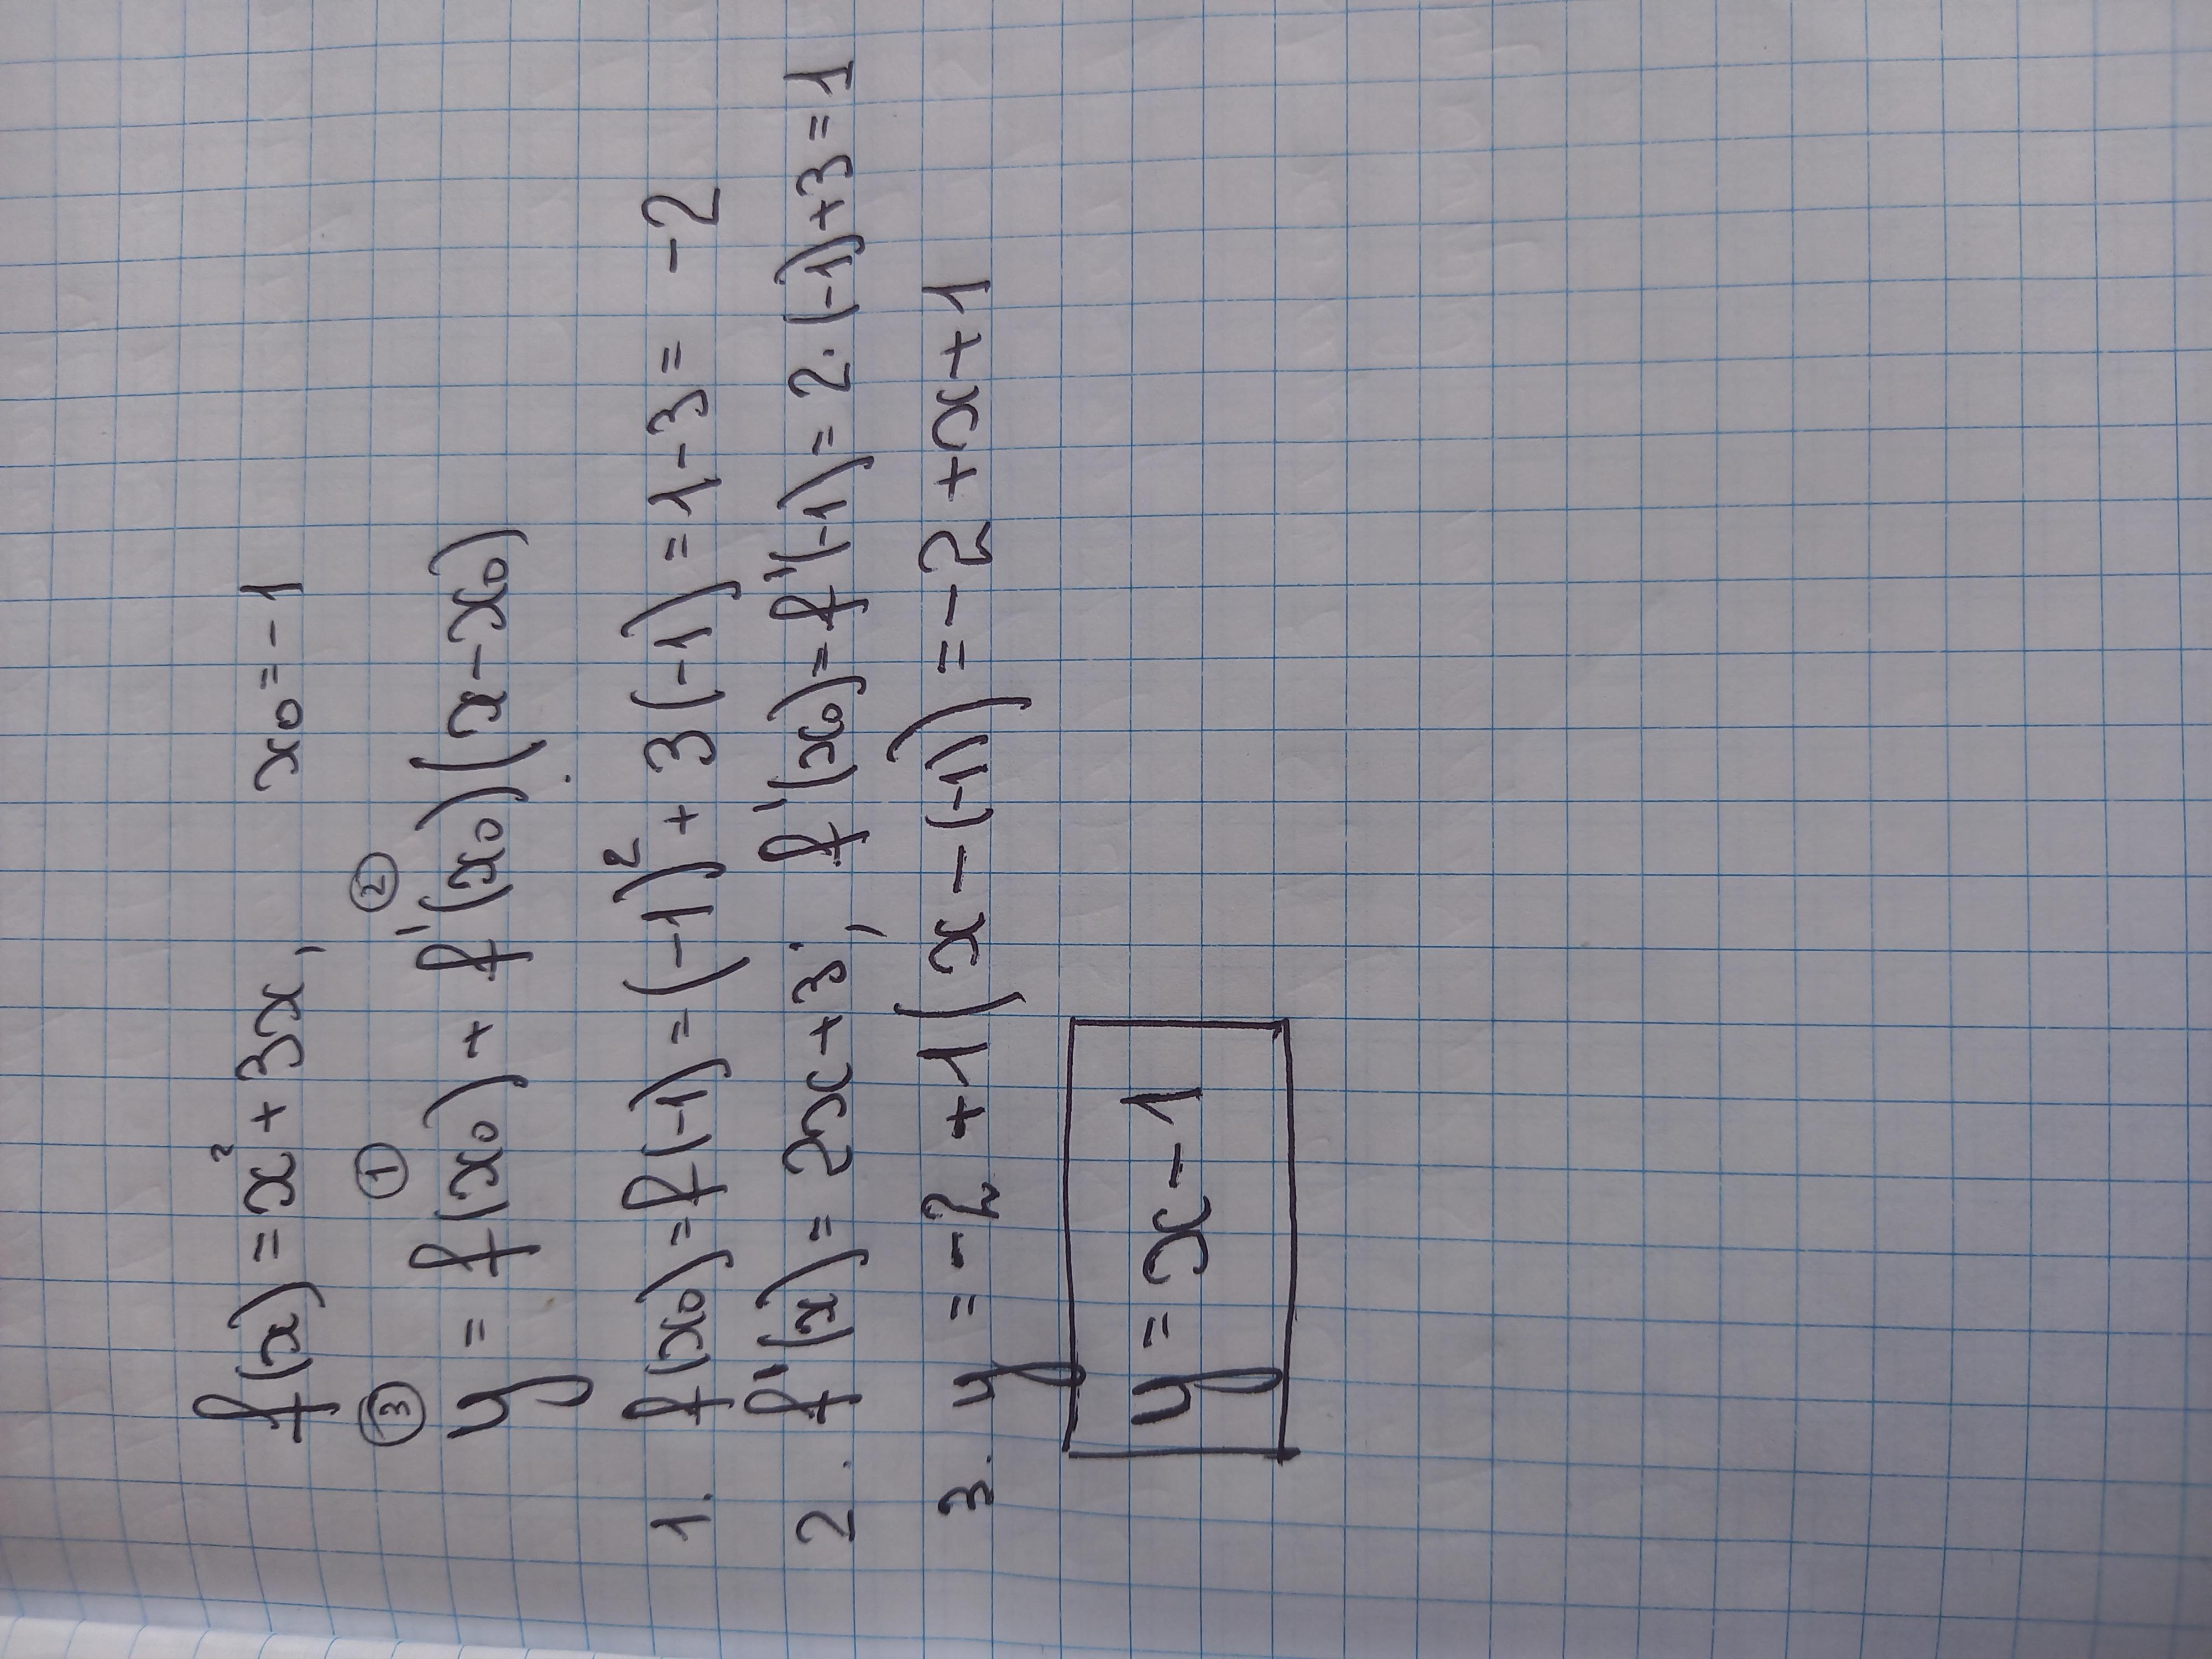 f(x) = x² + 3x, x₀ = -1
③ ① ②
y = f(x₀) + f'(x₀)(x - x₀)
1. f(x₀) = f(-1) = (-1)² + 3(-1) = 1 - 3 = -2
2. f'(x) = 2x + 3; f'(x₀) = f'(-1) = 2 · (-1) + 3 = 1
3. y = -2 + 1(x - (-1)) = -2 + x + 1
y = x - 1